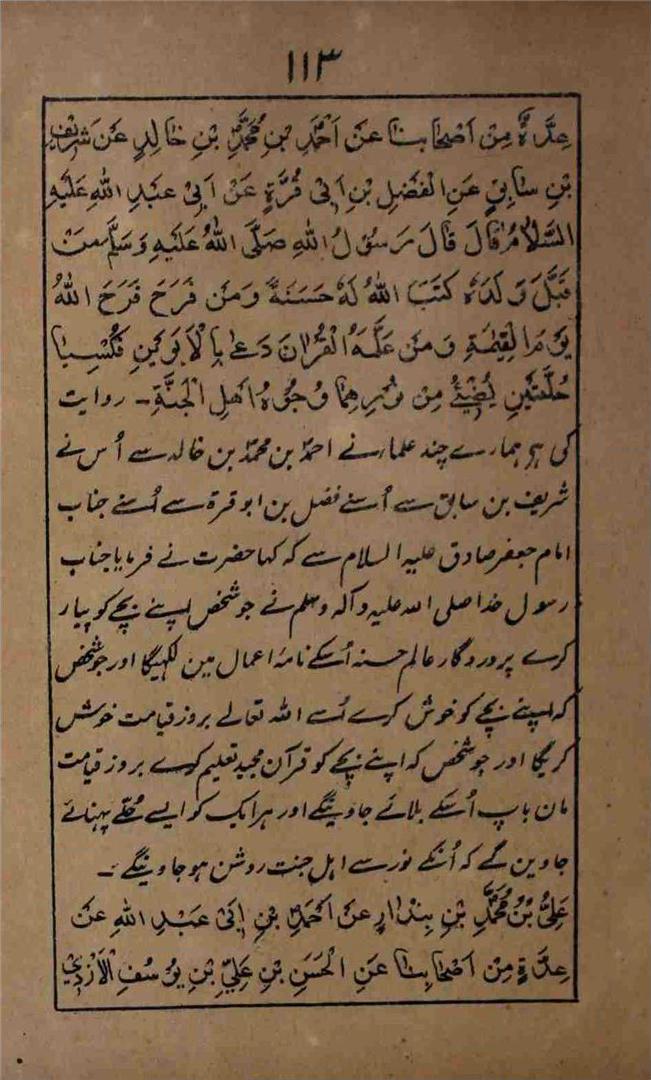 ۱۱۳
عِدَّةٌ مِنْ اَصْحَابِنَا عَنْ اَحْمَدَ بْنِ مُحَمَّدِ بْنِ خَالِدٍ عَنْ شَرِيْفِ
بْنِ سَابِقٍ عَنِ الْفَضْلِ بْنِ اَبِيْ قُرَّةٍ عَنْ اَبِيْ عَبْدِ اللهِ عَلَيْهِ
السَّلَامُ قَالَ قَالَ رَسُوْلُ اللهِ صَلَّى اللهُ عَلَيْهِ وَسَلَّمَ مَنْ
قَبَّلَ وَلَدَهُ كَتَبَ اللهُ لَهُ حَسَنَةً وَمَنْ فَرَّحَ فَرَّحَ اللهُ
يَوْمَ الْقِيٰمَةِ وَمَنْ عَلَّمَهُ الْقُرْاٰنَ دَعٰى بِالْاَبَوَيْنِ فَكُسِيَا
حُلَّتَيْنِ يُضِيْئُ مِنْ نُوْرِهِمَا وُجُوْهُ اَهْلِ الْجَنَّةِ ۔ روایت
کی ہو ہمارے چند علمارنے احمد بن محمد بن خالد سے اُس نے
شریف بن سابق سے اُسنے فضل بن ابو قرۃ سے اُسنے جناب
امام جعفر صادق علیہ السلام سے کہ کہا حضرت نے فرمایا جناب
رسول خدا صلی اللہ علیہ وآلہ وسلم نے جو شخص اپنے بچے کو پیار
کرے پروردگار عالم حسنہ اُسکے نامۂ اعمال مین لکہیگا اور جو شخص
کہ اپنے بچے کو خوش کرے اُسے اللہ تعالے بروز قیامت خوش
کریگا اور جو شخص کہ اپنے بچے کو قرآن مجید تعلیم کرے بروز قیامت
مان باپ اُسکے بلائے جاوینگے اور ہر ایک کو ایسے حُلّے پہنائے
جاوین گے کہ اُنکے نور سے اہل جنت روشن ہو جاوینگے ۔
عَلِيُّ بْنُ مُحَمَّدِ بْنِ بِنْدَارٍ عَنْ اَحْمَدَ بْنِ اَبِيْ عَبْدِ اللهِ عَنْ
عِدَّةٍ مِنْ اَصْحَابِنَا عَنِ الْحَسَنِ بْنِ عَلِيِّ بْنِ يُوْسُفِ الْاَزْدِيْ